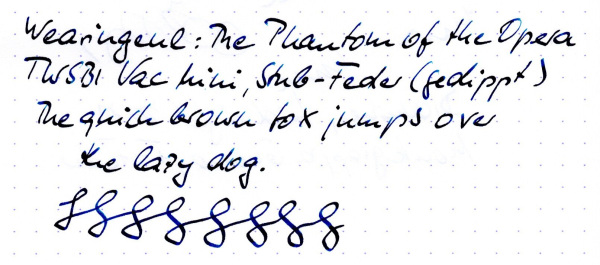 Wearingeul: The Phantom of the Opera
TWSBI Vac Mini, Stub-Feder (gedippt)
The quick brown fox jumps over
the lazy dog.